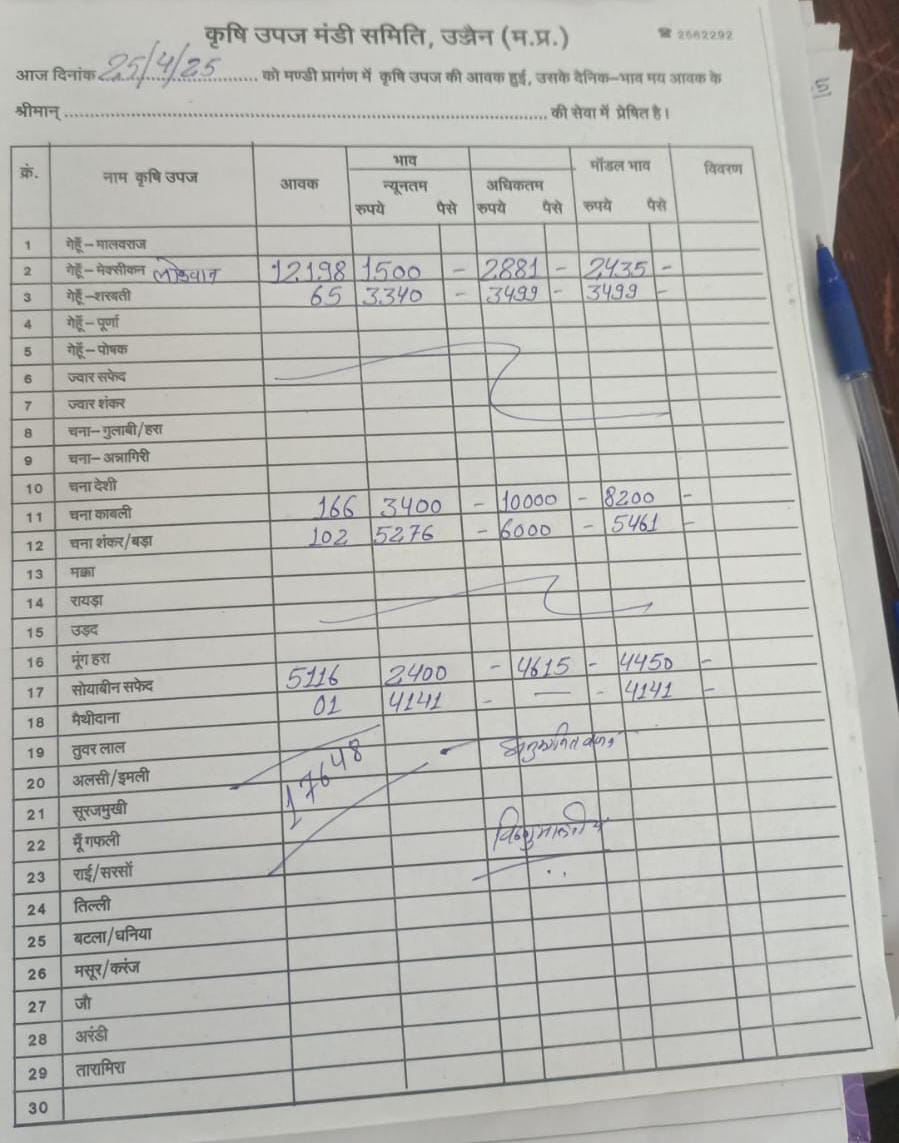 कृषि उपज मंडी समिति, उज्जैन (म.प्र.) ☎ 2562292
आज दिनांक 25/4/25 को मण्डी प्रागंण में कृषि उपज की आवक हुई, उसके दैनिक-भाव मय आवक के
श्रीमान् की सेवा में प्रेषित है।
क्रं. नाम कृषि उपज आवक भाव मॉडल भाव विवरण
न्यूनतम अधिकतम
रुपये पैसे रुपये पैसे रुपये पैसे
1 गेहूँ-मालवराज
2 गेहूँ-मेक्सीकन लोकवान 12198 1500 - 2881 - 2435 -
3 गेहूँ-शरबती 65 3340 - 3499 - 3499 -
4 गेहूँ-पूर्णा
5 गेहूँ-पोषक
6 ज्वार सफेद
7 ज्वार शंकर
8 चना-गुलाबी/हरा
9 चना-अन्नागिरी
10 चना देशी
11 चना काबली 166 3400 - 10000 - 8200 -
12 चना शंकर/बड़ा 102 5276 - 6000 - 5461 -
13 मक्का
14 रायड़ा
15 उड़द
16 मूंग हरा
17 सोयाबीन सफेद 5116 2400 - 4615 - 4450 -
18 मैथीदाना 01 4141 - — - 4141 -
19 तुवर लाल
20 अलसी/इमली 17648
21 सूरजमुखी
22 मूँगफली
23 राई/सरसों
24 तिल्ली
25 बटला/धनिया
26 मसूर/करंज
27 जौ
28 अरंडी
29 तारामिरा
30
5